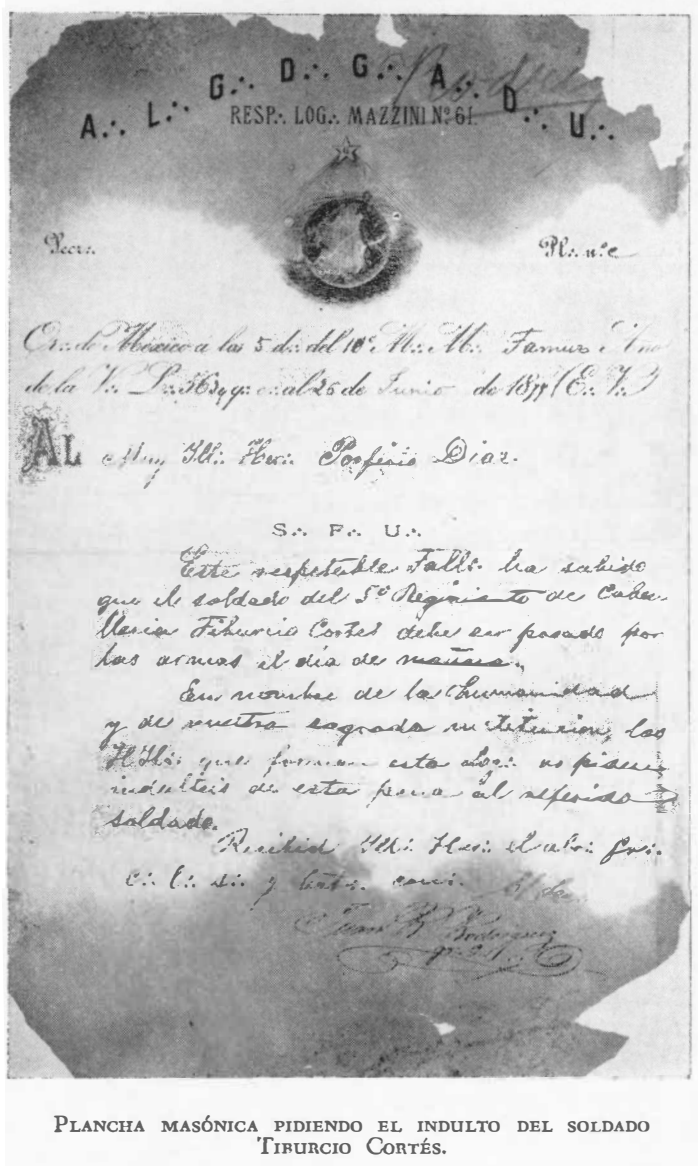 A∴ L∴ G∴ D∴ G∴ A∴ D∴ U∴
RESP∴ LOG∴ MAZZINI Nº 61.
Secr∴
Pl∴ nº
Or∴ de México a los 5 d∴ del 10º M∴ M∴ Famuz Año
de la V∴ L∴ al 26 de Junio de 187 (E∴ V∴)
AL Muy Ill∴ Her∴ Porfirio Diaz.
S∴ F∴ U∴
Este respetable Tall∴ ha sabido
que el soldado del 5º Regimiento de Caba-
lleria Tiburcio Cortes debe ser pasado por
las armas el dia de mañana.
En nombre de la humanidad
y de nuestra sagrada institucion, los
HHh∴ que forman esta Log∴ os piden
indulteis de esta pena al referido
soldado.
Recibid Ill∴ Her∴ el abr∴ fra∴
y
Rodriguez
PLANCHA MASÓNICA PIDIENDO EL INDULTO DEL SOLDADO
TIBURCIO CORTÉS.